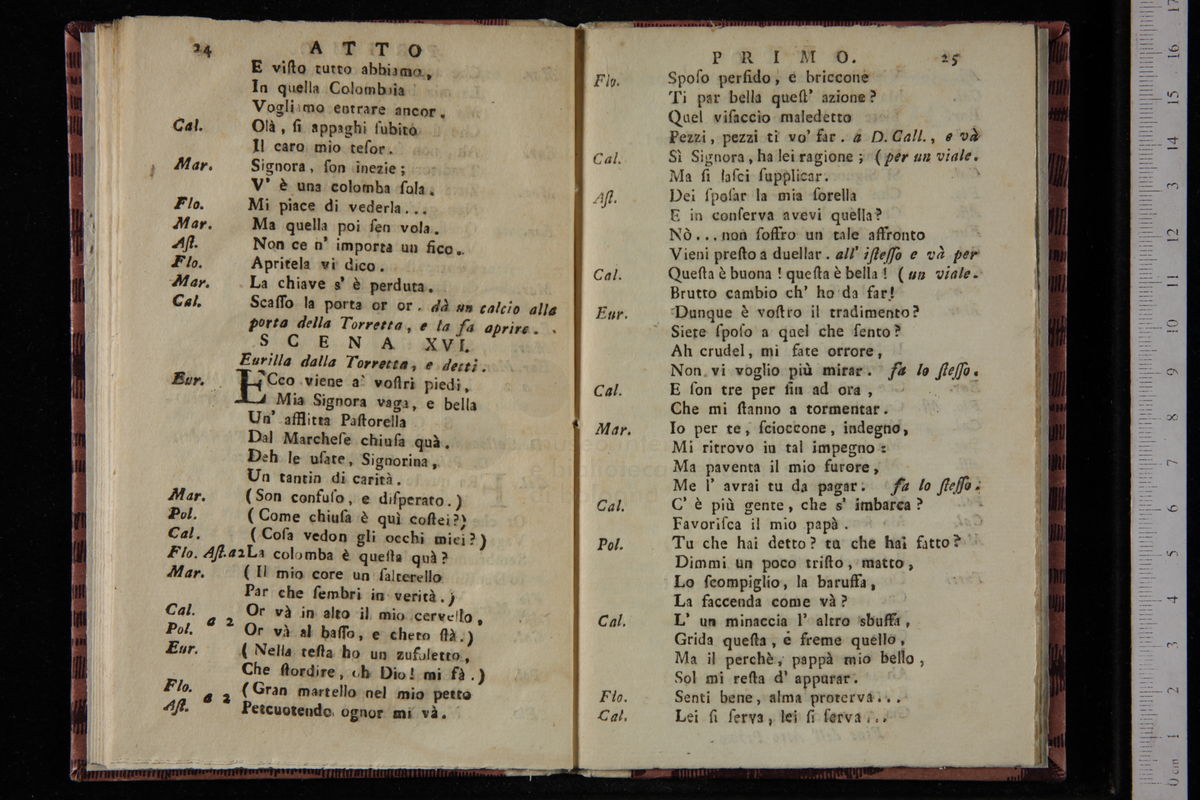 24 ATTO
E viſto tutto abbiamo,
In quella Colombaia
Vogliamo entrare ancor.
Cal. Olà, ſi appaghi ſubito
Il caro mio teſor.
Mar. Signora, ſon inezie;
V' è una colomba ſola.
Flo. Mi piace di vederla...
Mar. Ma quella poi ſen vola.
Aſt. Non ce n' importa un fico.
Flo. Apritela vi dico.
Mar. La chiave s' è perduta.
Cal. Scaſſo la porta or or. dà un calcio alla
porta della Torretta, e la fa aprire.
SCENA XVI.
Eurilla dalla Torretta, e detti.
Eur. ECco viene a' voſtri piedi,
Mia Signora vaga, e bella
Un' afflitta Paſtorella
Dal Marcheſe chiuſa quà.
Deh le uſate, Signorina,
Un tantin di carità.
Mar. (Son confuſo, e diſperato.)
Pol. (Come chiuſa è quì coſtei?)
Cal. (Coſa vedon gli occhi miei?)
Flo. Aſt. a2 La colomba è queſta quà?
Mar. (Il mio core un ſalterello
Par che ſembri in verità.)
Cal. a 2 Or và in alto il mio cervello,
Pol. Or và al baſſo, e cheto ſtà.)
Eur. (Nella teſta ho un zufoletto,
Che ſtordire, oh Dio! mi fà.)
Flo. a 2 (Gran martello nel mio petto
Aſt. Percuotendo ognor mi và.
PRIMO. 25
Flo. Spoſo perfido, e briccone
Ti par bella queſt' azione?
Quel viſaccio maledetto
Pezzi, pezzi ti vo' far. a D. Call., e và
Cal. Sì Signora, ha lei ragione; (per un viale.
Ma ſi laſci ſupplicar.
Aſt. Dei ſpoſar la mia ſorella
E in conſerva avevi quella?
Nò... non ſoffro un tale affronto
Vieni preſto a duellar. all' iſteſſo e và per
Cal. Queſta è buona! queſta è bella! (un viale.
Brutto cambio ch' ho da far!
Eur. Dunque è voſtro il tradimento?
Siete ſpoſo a quel che ſento?
Ah crudel, mi fate orrore,
Non vi voglio più mirar. fa lo ſteſſo.
Cal. E ſon tre per fin ad ora,
Che mi ſtanno a tormentar.
Mar. Io per te, ſcioccone, indegno,
Mi ritrovo in tal impegno:
Ma paventa il mio furore,
Me l' avrai tu da pagar. fa lo ſteſſo.
Cal. C' è più gente, che s' imbarca?
Favoriſca il mio papà.
Pol. Tu che hai detto? tu che hai fatto?
Dimmi un poco triſto, matto,
Lo ſcompiglio, la baruffa,
La faccenda come và?
Cal. L' un minaccia l' altro sbuffa,
Grida queſta, e freme quello,
Ma il perchè, pappà mio bello,
Sol mi reſta d' appurar.
Flo. Senti bene, alma proterva...
Cal. Lei ſi ſerva, lei ſi ſerva...